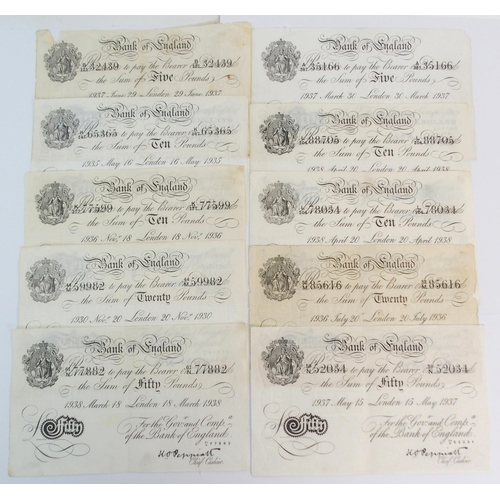 Bank of England
32439 to pay the Bearer 32439
the Sum of Five Pounds
1937 June 29 London 29 June 1937
Bank of England
65365 to pay the Bearer 65365
the Sum of Ten Pounds
1935 May 16 London 16 May 1935
Bank of England
77599 to pay the Bearer 77599
the Sum of Ten Pounds
1936 Novr. 18 London 18 Novr. 1936
Bank of England
59982 to pay the Bearer 59982
the Sum of Twenty Pounds
1930 Novr. 20 London 20 Novr. 1930
Bank of England
77882 to pay the Bearer 77882
the Sum of Fifty Pounds
1938 March 18 London 18 March 1938
For the Govr. and Compa.
of the Bank of England
£Fifty
K O Peppiatt
Chief Cashier
Bank of England
35166 to pay the Bearer 35166
the Sum of Five Pounds
1937 March 31 London 31 March 1937
Bank of England
88705 to pay the Bearer 88705
the Sum of Ten Pounds
1938 April 20 London 20 April 1938
Bank of England
78034 to pay the Bearer 78034
the Sum of Ten Pounds
1938 April 20 London 20 April 1938
Bank of England
85616 to pay the Bearer 85616
the Sum of Twenty Pounds
1936 July 20 London 20 July 1936
Bank of England
52034 to pay the Bearer 52034
the Sum of Fifty Pounds
1937 May 15 London 15 May 1937
For the Govr. and Compa.
of the Bank of England
£Fifty
K O Peppiatt
Chief Cashier